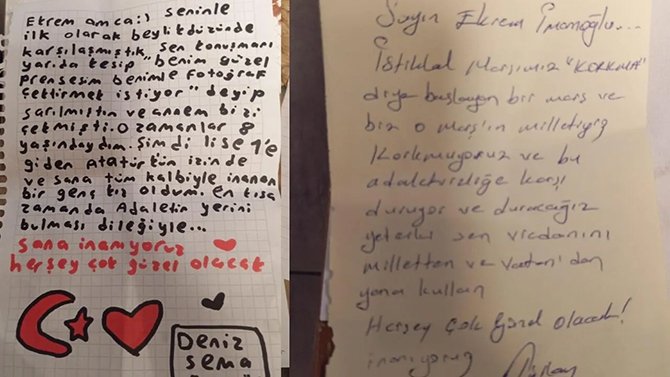 Ekrem amca:) seninle
ilk olarak beylikdüzünde
karşılaşmıştık. Sen konuşmanı
yarıda kesip "benim güzel
prensesim benimle fotoğraf
çettirmek istiyor" deyip
sarılmıştın ve annem bizi
çekmişti. O zamanlar 8
yaşındaydım. Şimdi lise 1'e
giden Atatürk'ün izinde
ve sana tüm kalbiyle inanan
bir genç kız oldum. En kısa
zamanda Adaletin yerini
bulması dileğiyle...
sana inanıyoruz
herşey çok güzel olacak
DENİZ
SEMA
Sayın Ekrem İmamoğlu...
İstiklal Marşımız "KORKMA"
diye başlayan bir marş ve
biz o Marş'ın milletiyiz
Korkmuyoruz ve bu
adaletsizliğe karşı
duruyor ve duracağız
yeterki sen vicdanını
milletten ve Vatan'dan
yana kullan
Herşey Çok Güzel olacak!
inanıyoruz